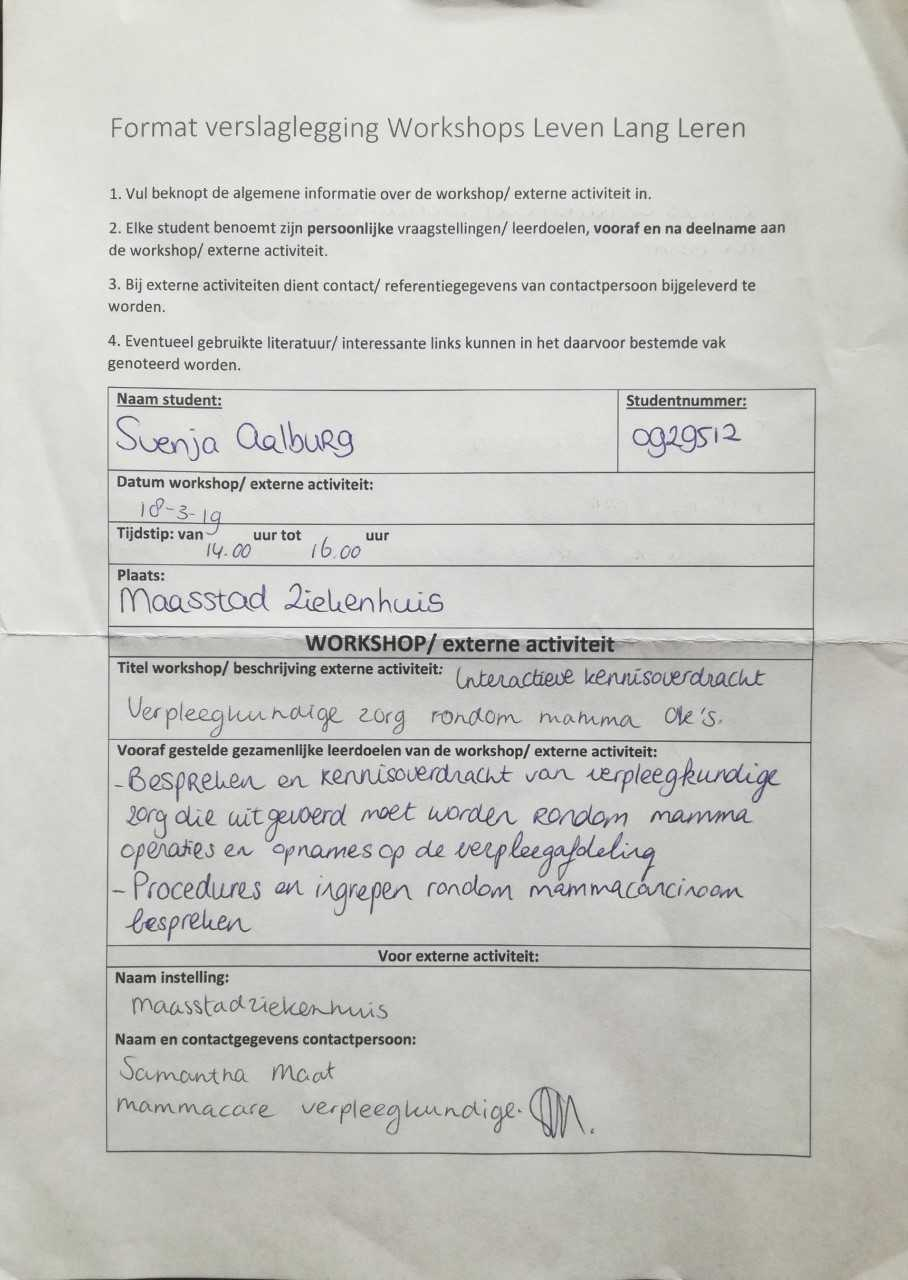 Format verslaglegging Workshops Leven Lang Leren
1. Vul beknopt de algemene informatie over de workshop/ externe activiteit in.
2. Elke student benoemt zijn persoonlijke vraagstellingen/ leerdoelen, vooraf en na deelname aan
de workshop/ externe activiteit.
3. Bij externe activiteiten dient contact/ referentiegegevens van contactpersoon bijgeleverd te
worden.
4. Eventueel gebruikte literatuur/ interessante links kunnen in het daarvoor bestemde vak
genoteerd worden.
Naam student:
Svenja Aalburg
Studentnummer:
0929512
Datum workshop/ externe activiteit:
18-3-19
Tijdstip: van 14.00 uur tot 16.00 uur
Plaats:
Maasstad Ziekenhuis
WORKSHOP/ externe activiteit
Titel workshop/ beschrijving externe activiteit: Interactieve kennisoverdracht
Verpleegkundige zorg rondom mamma Ok's.
Vooraf gestelde gezamenlijke leerdoelen van de workshop/ externe activiteit:
- Bespreken en kennisoverdracht van verpleegkundige
zorg die uitgevoerd moet worden rondom mamma
operaties en opnames op de verpleegafdeling
- Procedures en ingrepen rondom mammacarcinoom
bespreken
Voor externe activiteit:
Naam instelling:
maasstadziekenhuis
Naam en contactgegevens contactpersoon:
Samantha Maat
mammacare verpleegkundige.